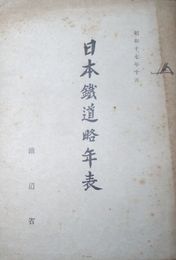 昭和十七年十月
日本鐵道略年表
鐵道省